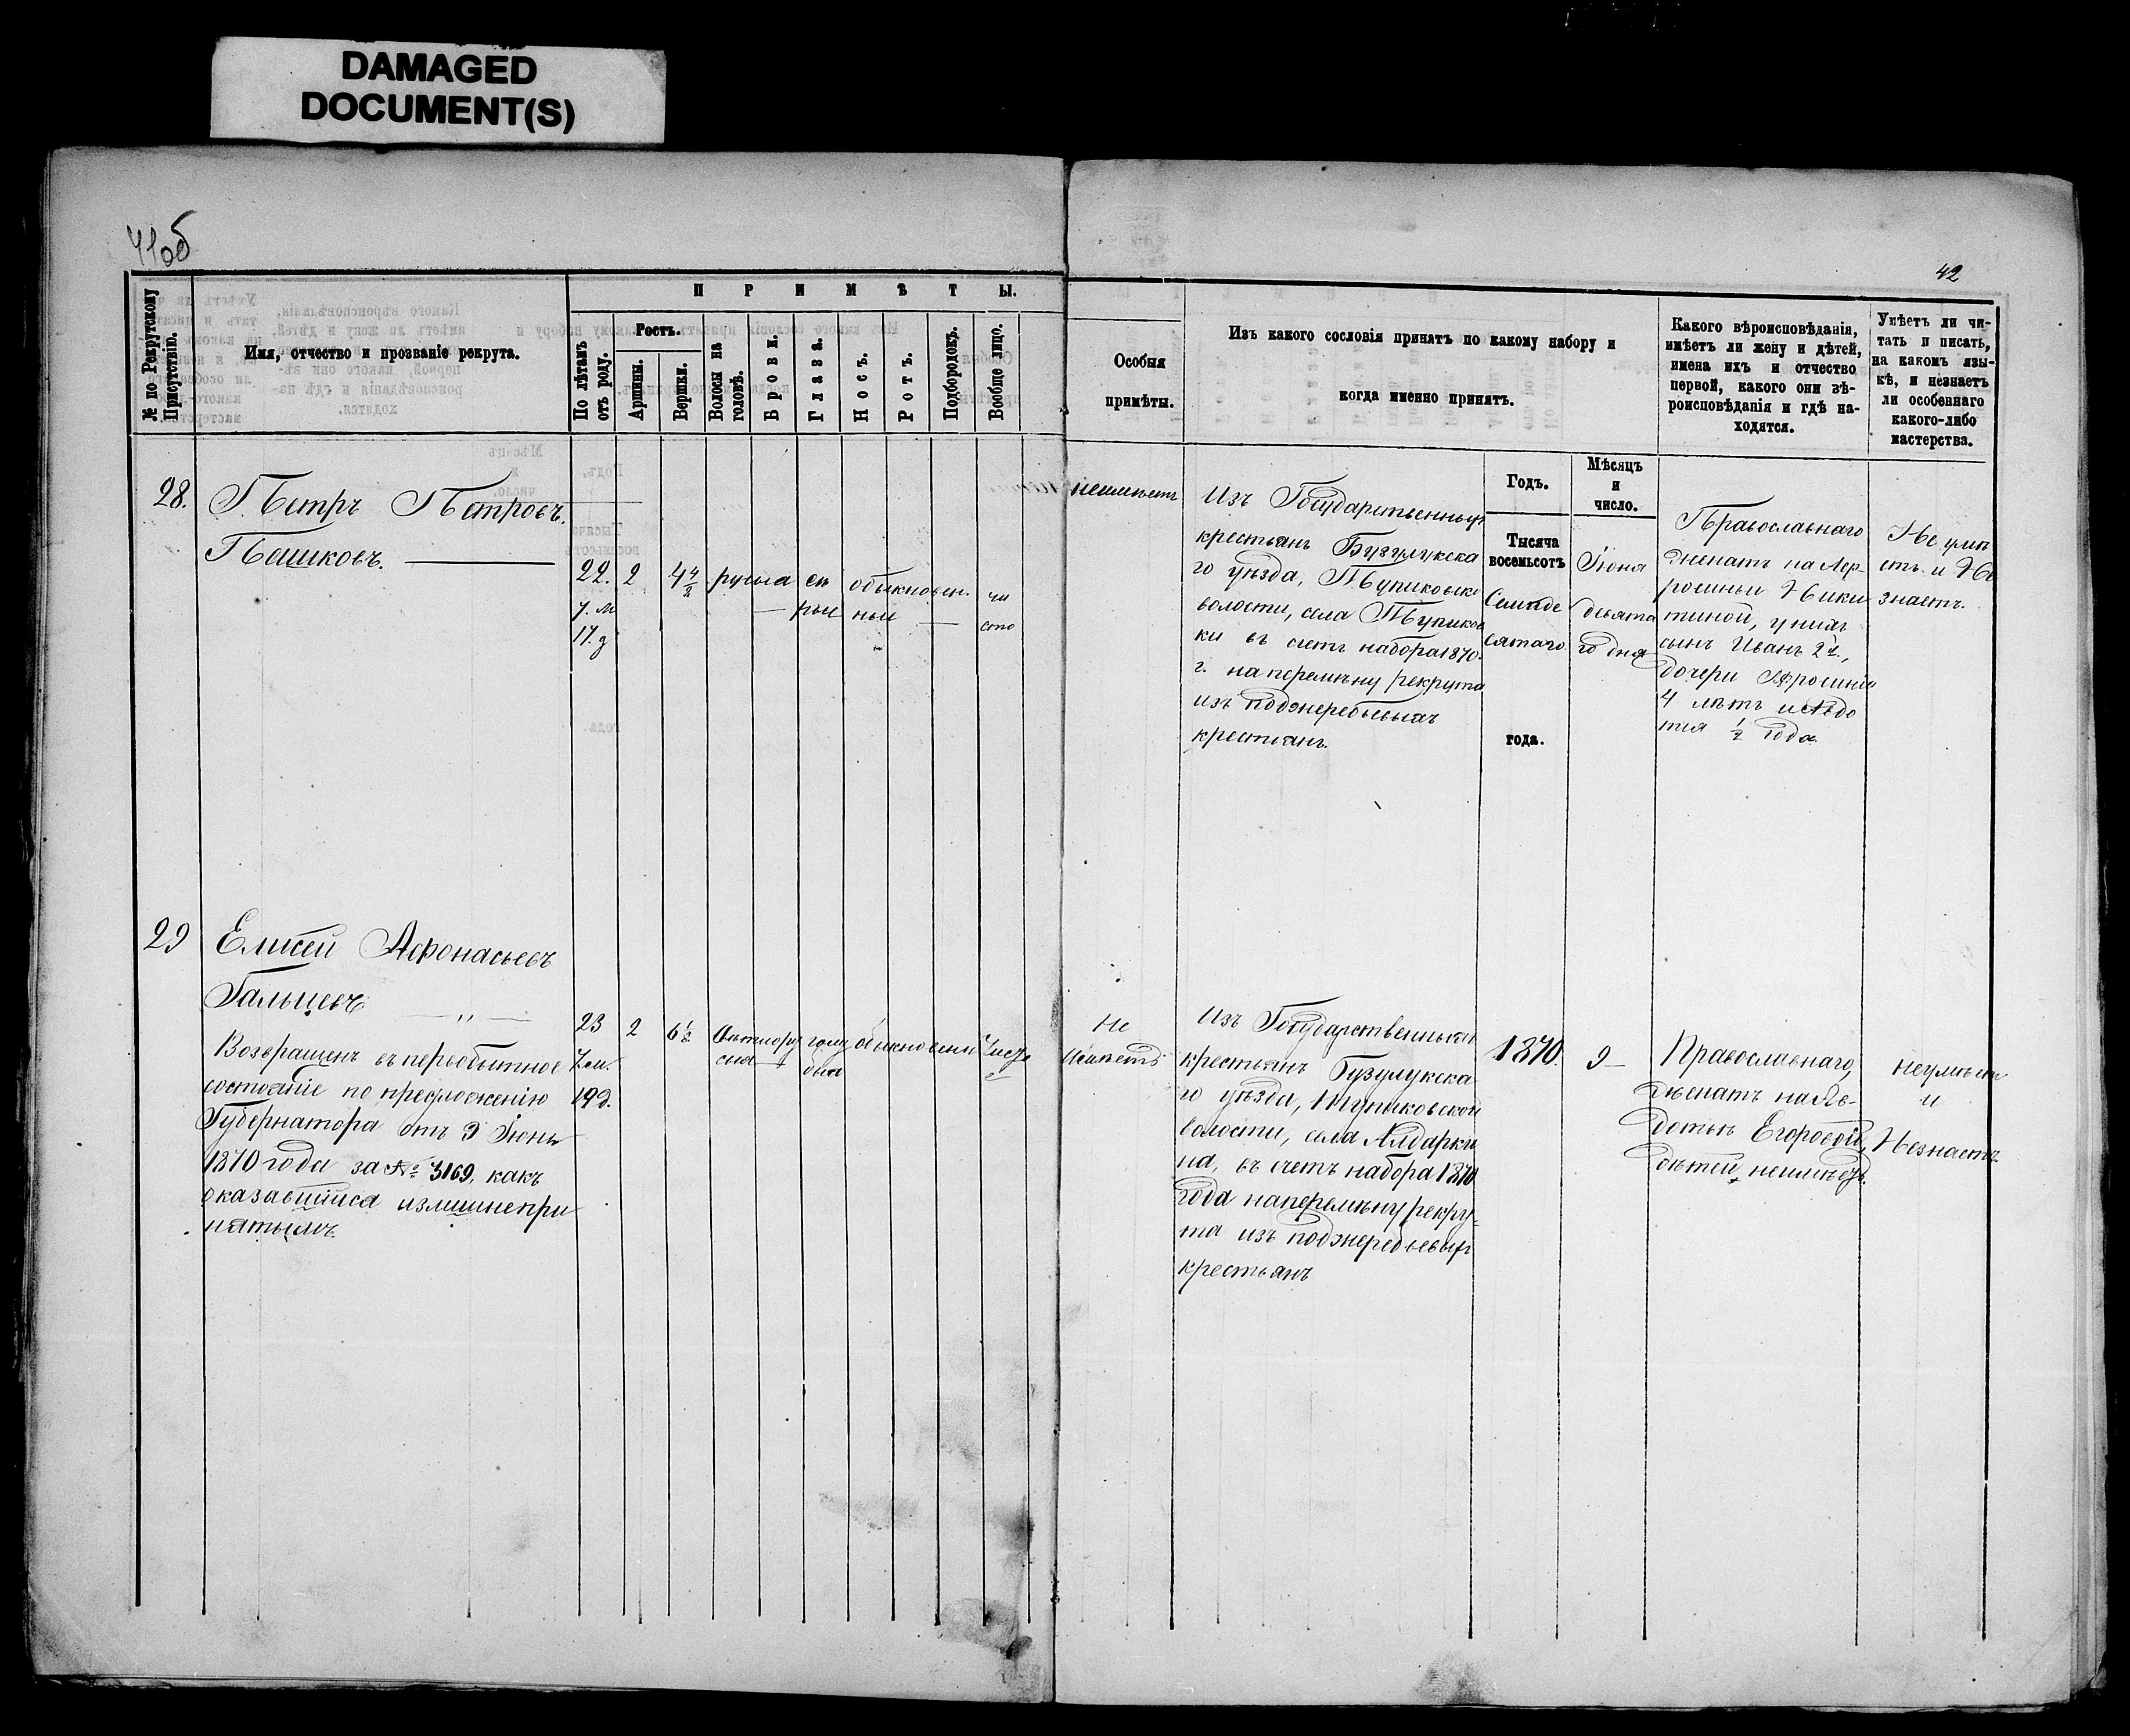 DAMAGED
DOCUMENT(S)
41об
42
№ по Рекрутскому Присутствію.
Имя, отчество и прозваніе рекрута.
ПРИМѢТЫ.
По лѣтамъ отъ роду.
Ростъ.
Аршины.
Вершки.
Волосы на головѣ.
Брови.
Глаза.
Носъ.
Ротъ.
Подбородокъ.
Вообще лицо.
Особыя
примѣты.
Изъ какого сословія принятъ по какому набору и
когда именно принятъ.
Какого вѣроисповѣданія,
имѣетъ ли жену и дѣтей,
имена ихъ и отчество
первой, какого они вѣ-
роисповѣданія и гдѣ на-
ходятся.
Умѣетъ ли чи-
тать и писать,
на какомъ язы-
кѣ, и незнаетъ
ли особеннаго
какого-либо
мастерства.
Годъ.
Мѣсяцъ
и
число.
28.
Петръ Петровъ.
Пашковъ.
22.
7. м
17. д
2
4 4/2
русыя
сѣ
рые
обыкновен
ные
чи
сто
неимѣетъ
Изъ Государственныхъ
крестьянъ Бузулукска
го уѣзда, Тупиковск
волости, села Тупиков
ки въ счетъ набора 1870.
г. на перемѣну рекрута
изъ поджеребьевыхъ
крестьянъ.
Тысяча
восемьсотъ
Семиде
сятаго
года.
Іюня
девята
го дня
Православнаго
женатъ на
Ники
тиной, у нихъ
сынъ Иванъ 2 г.,
дочери Афросинія
4 лѣтъ и Авдо
тия 1/2 года
Не умѣ
етъ и Не
знаетъ.
29
Елисей Афонасьевъ
Гальцевъ
Возвращенъ въ первобытное
состояніе по предложенію
Губернатора отъ 9 Іюня
1870 года за № 3169, какъ
оказавшійся излишнепри
нятымъ
23
7 м.
19 д.
2
6 1/2
Свѣтлору
сыя
голу
быя
обыкновенн
Чисто
е
Не
Имѣетъ
Изъ Государственныхъ
крестьянъ Бузулукска
го уѣзда, Тупиковской
волости, села Алдарки
на, въ счетъ набора 1870
года наперемѣну рекру-
та изъ поджеребьевыхъ
крестьянъ
1870.
9
Православнаго,
женатъ на Ав-
дотьѣ Егоровой,
дѣтей неимѣетъ.
неумѣетъ
и
Незнаетъ